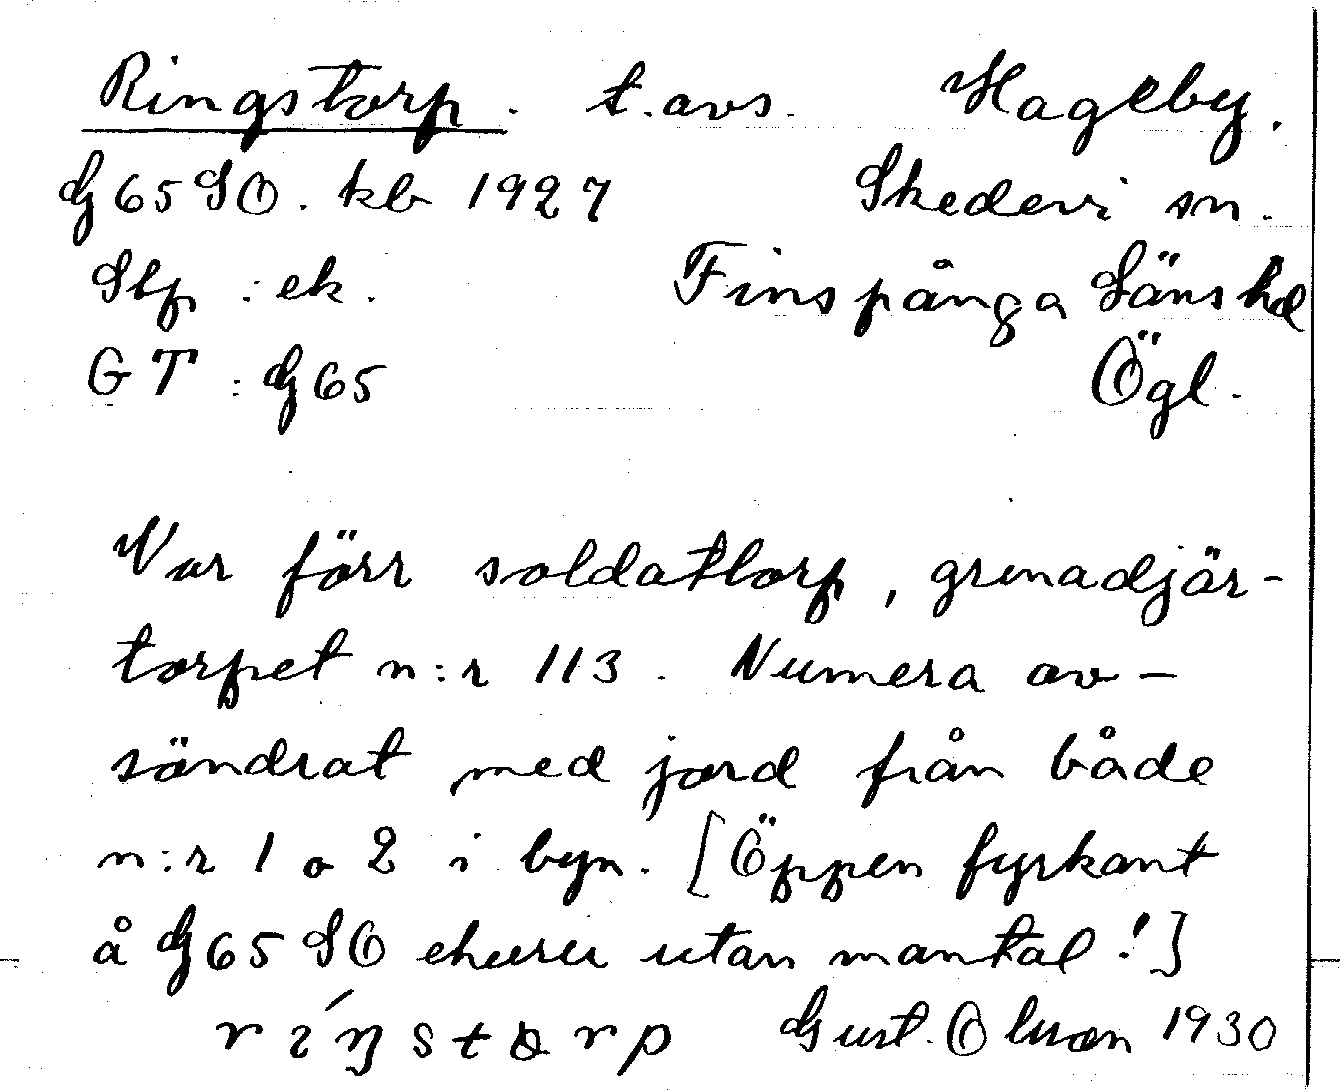 Ringstorp. t.avs. Hageby.
G65SO. kb 1927 Skedevi sn.
Stp : ek. Finspånga Läns hd
GT : G65 Ögl.
Var förr soldattorp, grenadjär-
torpet n:r 113. Numera av-
söndrat med jord från både
n:r 1 o 2 i byn. [Öppen fyrkant
å G65 SO ehuru utan mantal!]
Gust. Olsson 1930